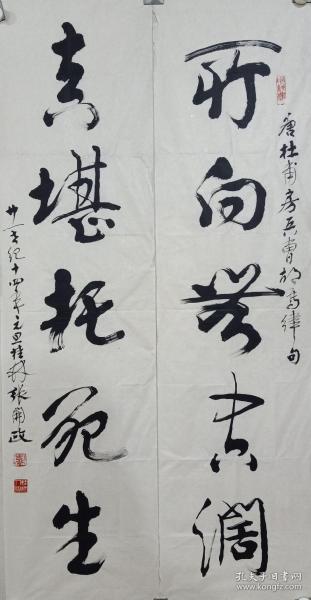 唐杜甫房兵曹胡马律句
所向无空阔
真堪托死生
廿一世纪十四年元旦桂林张开政
孔夫子旧书网